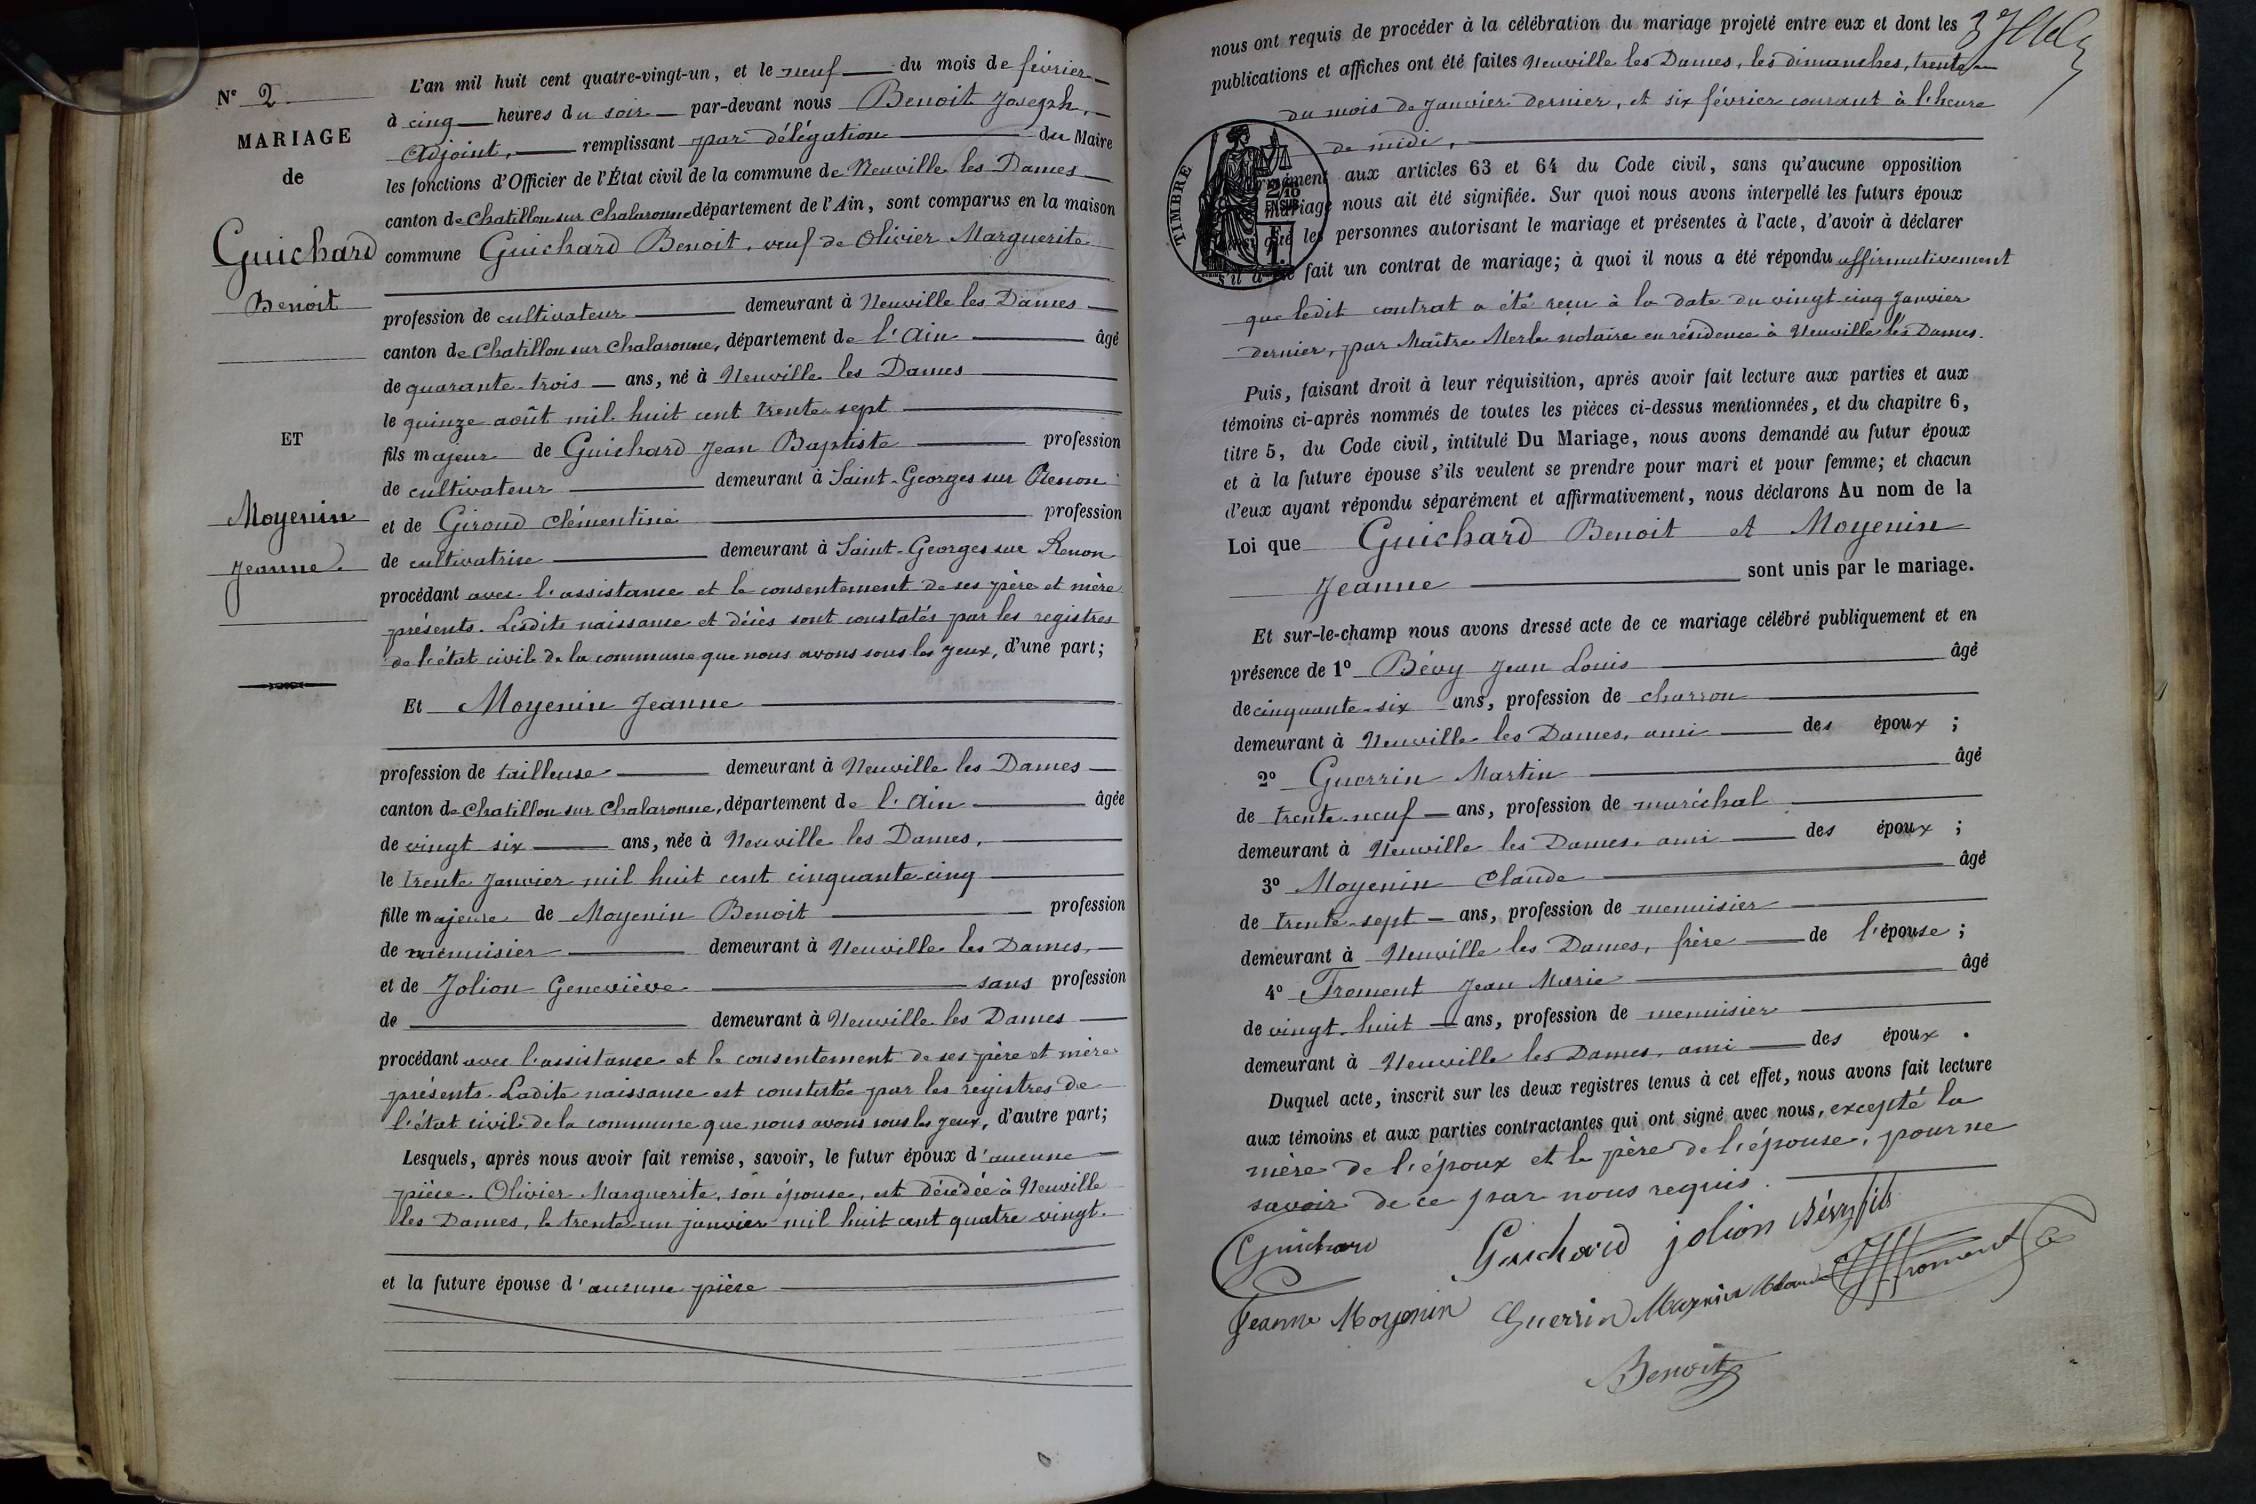 N° 2
MARIAGE
de
Guichard
Benoit
ET
Moyenin
Jeanne.
L'an mil huit cent quatre-vingt-un, et le neuf du mois de février
à cinq heures du soir par-devant nous Benoit Joseph,
Adjoint, remplissant par délégation du Maire
les fonctions d'Officier de l'État civil de la commune de Neuville les Dames
canton de Chatillon sur Chalaronne département de l'Ain, sont comparus en la maison
commune Guichard Benoit, veuf de Olivier Marguerite
profession de cultivateur demeurant à Neuville les Dames
canton de Chatillon sur Chalaronne, département de l'Ain âgé
de quarante-trois ans, né à Neuville les Dames
le quinze août mil huit cent trente-sept
fils majeur de Guichard Jean Baptiste profession
de cultivateur demeurant à Saint-Georges sur Renon
et de Giroud Clémentine profession
de cultivatrice demeurant à Saint-Georges sur Renon
procédant avec l'assistance et le consentement de ses père et mère
présents. Lesdits naissance et décès sont constatés par les registres
de l'état civil de la commune que nous avons sous les yeux, d'une part;
Et Moyenin Jeanne
profession de tailleuse demeurant à Neuville les Dames
canton de Chatillon sur Chalaronne, département de l'Ain âgée
de vingt six ans, née à Neuville les Dames,
le trente Janvier mil huit cent cinquante-cinq
fille majeure de Moyenin Benoit profession
de menuisier demeurant à Neuville les Dames,
et de Jolion Geneviève sans profession
de demeurant à Neuville les Dames
procédant avec l'assistance et le consentement de ses père et mère
présents. Ladite naissance est constatée par les registres de
l'état civil de la commune que nous avons sous les yeux, d'autre part;
Lesquels, après nous avoir fait remise, savoir, le futur époux d'aucune
pièce. Olivier Marguerite, son épouse, est décédée à Neuville
les Dames, le trente-un janvier mil huit cent quatre vingt.
et la future épouse d'aucune pièce
nous ont requis de procéder à la célébration du mariage projeté entre eux et dont les
publications et affiches ont été faites Neuville les Dames, les dimanches, trente
du mois de Janvier dernier, et six février courant à l'heure
de midi,
TIMBRE
2/10
EN SUS
aux articles 63 et 64 du Code civil, sans qu'aucune opposition
mariage nous ait été signifiée. Sur quoi nous avons interpellé les futurs époux
les personnes autorisant le mariage et présentes à l'acte, d'avoir à déclarer
s'il a été fait un contrat de mariage; à quoi il nous a été répondu affirmativement
que ledit contrat a été reçu à la date du vingt-cinq Janvier
dernier, par Maître Merle notaire en résidence à Neuville les Dames.
Puis, faisant droit à leur réquisition, après avoir fait lecture aux parties et aux
témoins ci-après nommés de toutes les pièces ci-dessus mentionnées, et du chapitre 6,
titre 5, du Code civil, intitulé Du Mariage, nous avons demandé au futur époux
et à la future épouse s'ils veulent se prendre pour mari et pour femme; et chacun
d'eux ayant répondu séparément et affirmativement, nous déclarons Au nom de la
Loi que Guichard Benoit et Moyenin
Jeanne sont unis par le mariage.
Et sur-le-champ nous avons dressé acte de ce mariage célébré publiquement et en
présence de 1° Bévy Jean Louis âgé
de cinquante-six ans, profession de charron
demeurant à Neuville les Dames, ami des époux ;
2° Guerrin Martin âgé
de trente-neuf ans, profession de maréchal
demeurant à Neuville les Dames, ami des époux ;
3° Moyenin Claude âgé
de trente-sept ans, profession de menuisier
demeurant à Neuville les Dames, frère de l'épouse ;
4° Froment Jean Marie âgé
de vingt-huit ans, profession de menuisier
demeurant à Neuville les Dames, ami des époux .
Duquel acte, inscrit sur les deux registres tenus à cet effet, nous avons fait lecture
aux témoins et aux parties contractantes qui ont signé avec nous, excepté la
mère de l'époux et le père de l'épouse, pour ne
savoir de ce par nous requis.
Guichard Guichard jolion Bévy fils
Jeanne Moyenin Guerrin froment
Benoit